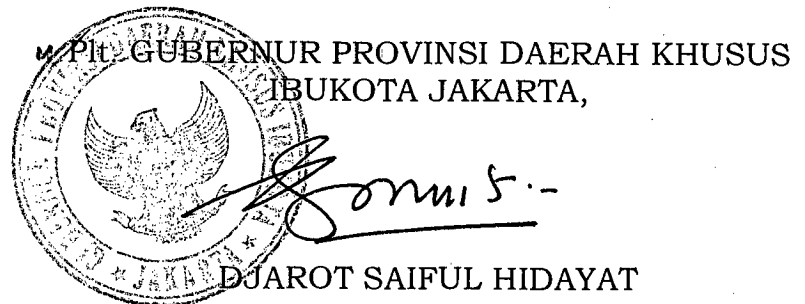 Plt. GUBERNUR PROVINSI DAERAH KHUSUS
IBUKOTA JAKARTA,
DJAROT SAIFUL HIDAYAT